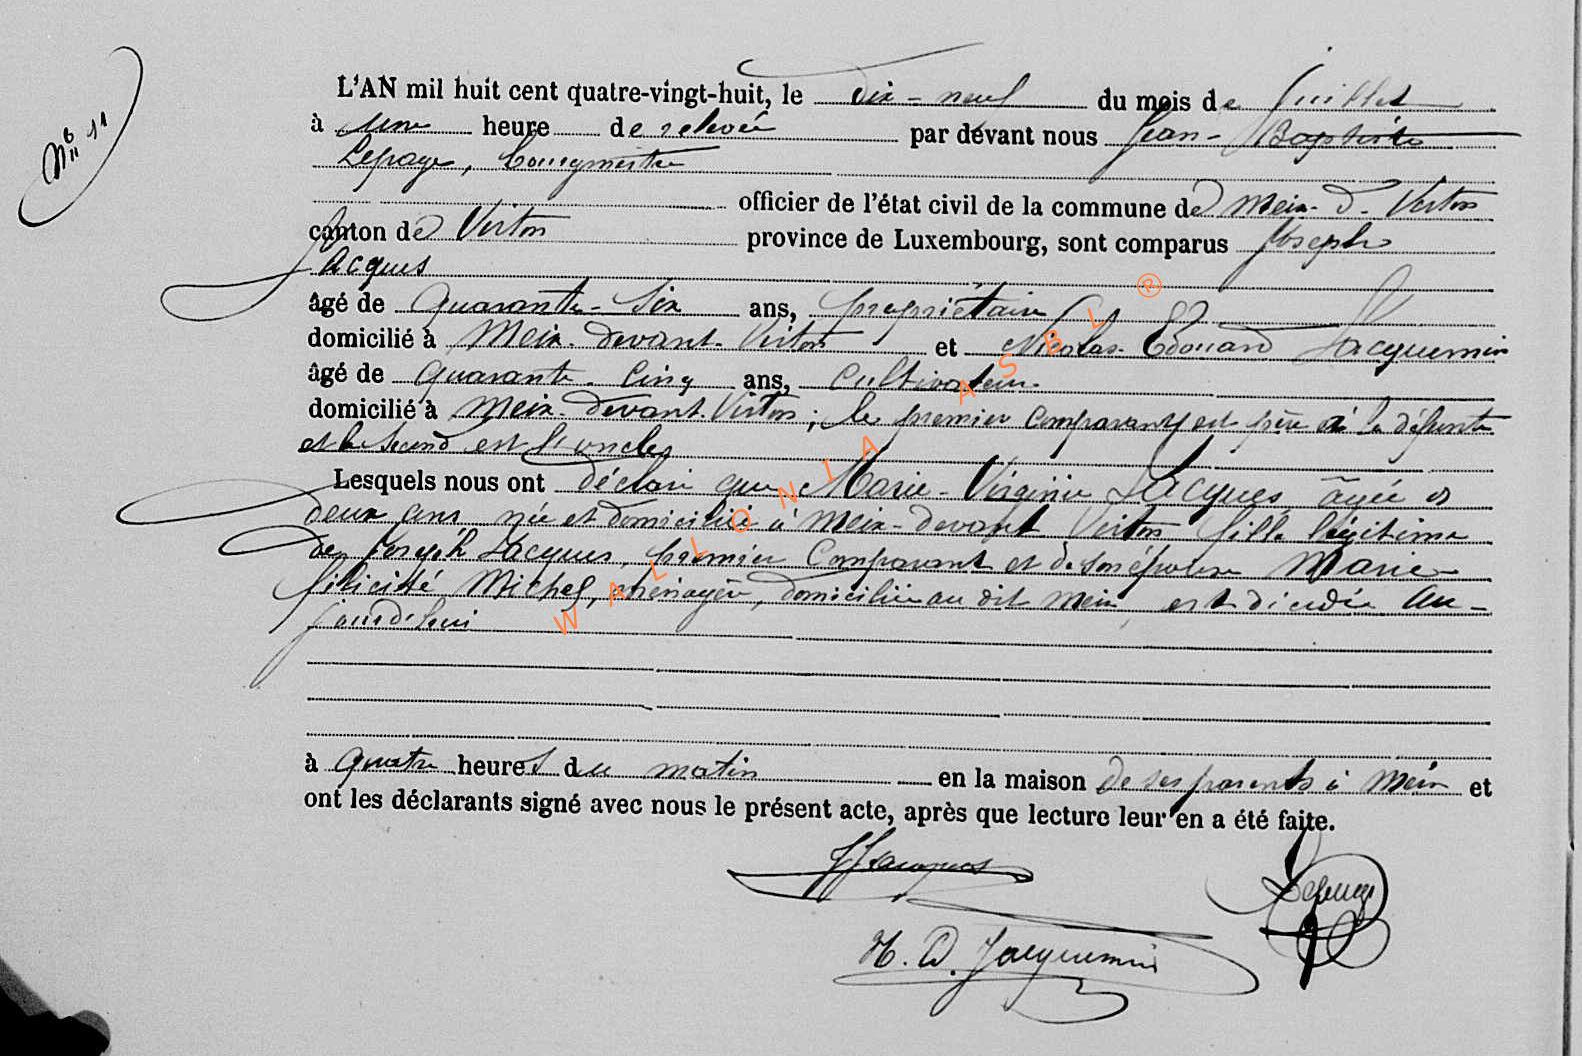 No 11
L'AN mil huit cent quatre-vingt-huit, le dix-neuf du mois de Juillet
à une heure de relevée par devant nous Jean-Baptiste
Lepage, bourgmestre
officier de l'état civil de la commune de Meix-d.-Virton
canton de Virton province de Luxembourg, sont comparus Joseph
Jacques
âgé de quarante-six ans, propriétaire
domicilié à Meix-devant-Virton et Nicolas-Edouard Jacquemin
âgé de quarante-cinq ans, cultivateur
domicilié à Meix-devant-Virton; le premier comparant est père à la défunte
et le second est l'oncle
Lesquels nous ont déclaré que Marie-Virginie Jacques, âgée de
deux ans née et domiciliée à Meix-devant Virton fille légitime
de Joseph Jacques, premier Comparant et de son épouse Marie
félicité Michel, ménagère, domiciliée au dit Meix est décédée au-
jourd'hui
à quatre heures du matin en la maison de ses parents à Meix et
ont les déclarants signé avec nous le présent acte, après que lecture leur en a été faite.
J Jacques Lepage
Jacquemin
WALLONIA ASBL ®